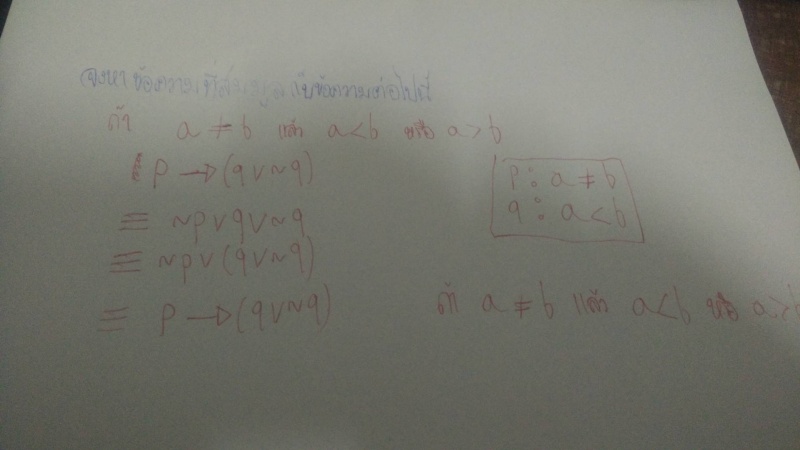 จงหาข้อความที่สมมูลกับข้อความต่อไปนี้
ถ้า a ≠ b แล้ว a < b หรือ a > b
p → (q ∨ ~q)
≡ ~p ∨ q ∨ ~q
≡ ~p ∨ (q ∨ ~q)
≡ p → (q ∨ ~q)
p : a ≠ b
q : a < b
ถ้า a ≠ b แล้ว a < b หรือ a >